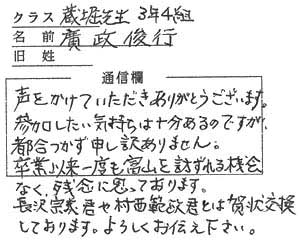 クラス 蔵堀先生 3年4組
名前 廣政俊行
旧姓
通信欄
声をかけていただきありがとうございます。
参加したい気持ちは十分あるのですが、
都合つかず申し訳ありません。
卒業以来一度も高山を訪ずれる機会
なく、残念に思っております。
長沢宗義君や村西範政君とは賀状交換
しております。よろしくお伝え下さい。